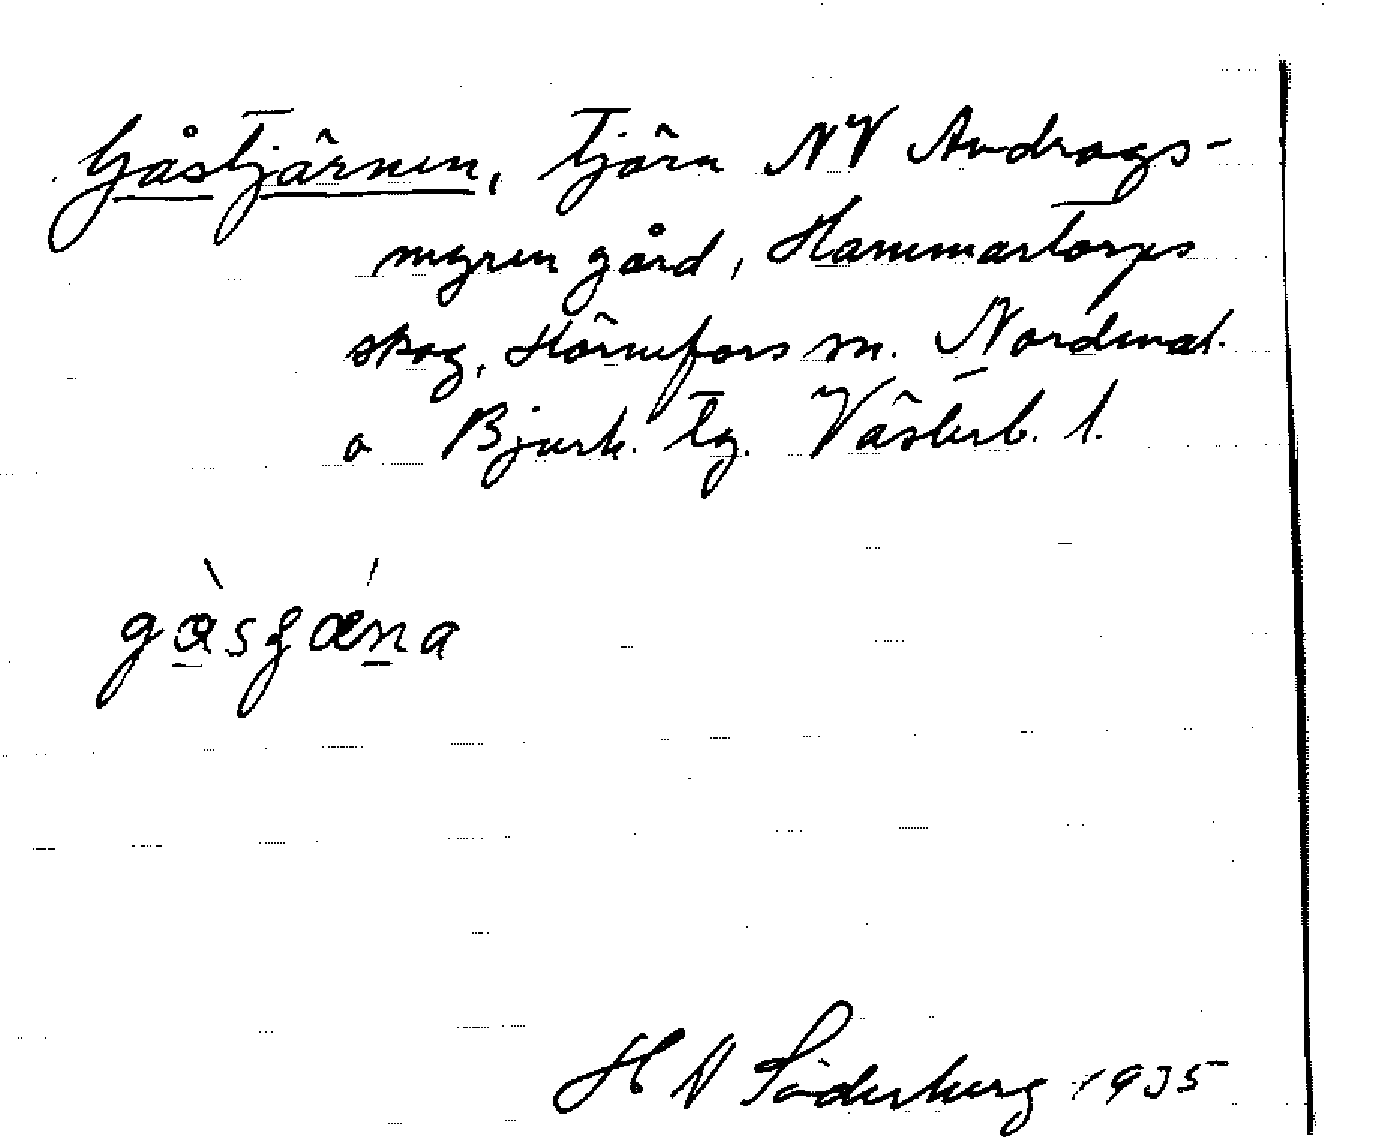 Gåstjärnen, tjärn NV Avdrags-
myren gård, Hammartorps
skog, Hörnefors sn. Nordmal.
o Bjurh. tg. Västerb. l.
H N Söderberg 1935